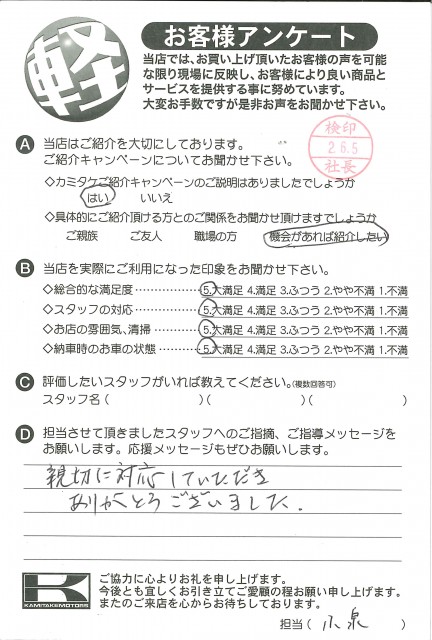 軽
お客様アンケート
当店では、お買い上げ頂いたお客様の声を可能
な限り現場に反映し、お客様により良い商品と
サービスを提供する事に努めています。
大変お手数ですが是非お声をお聞かせ下さい。
A 当店はご紹介を大切にしております。
ご紹介キャンペーンについてお聞かせ下さい。
検印
2.6.5
社長
◇カミタケご紹介キャンペーンのご説明はありましたでしょうか
はい いいえ
◇具体的にご紹介頂ける方とのご関係をお聞かせ頂けますでしょうか
ご親族 ご友人 職場の方 機会があれば紹介したい
B 当店を実際にご利用になった印象をお聞かせ下さい。
◇総合的な満足度……………5.大満足 4.満足 3.ふつう 2.やや不満 1.不満
◇スタッフの対応……………5.大満足 4.満足 3.ふつう 2.やや不満 1.不満
◇お店の雰囲気、清掃………5.大満足 4.満足 3.ふつう 2.やや不満 1.不満
◇納車時のお車の状態………5.大満足 4.満足 3.ふつう 2.やや不満 1.不満
C 評価したいスタッフがいれば教えてください。(複数回答可)
スタッフ名( )( )( )
D 担当させて頂きましたスタッフへのご指摘、ご指導メッセージを
お願いします。応援メッセージもぜひお願いします。
親切に対応していただき
ありがとうございました.
K
KAMITAKEMOTORS
ご協力に心よりお礼を申し上げます。
今後とも宜しくお引き立てご愛顧の程お願い申し上げます。
またのご来店を心からお待ちしております。
担当( 小泉 )